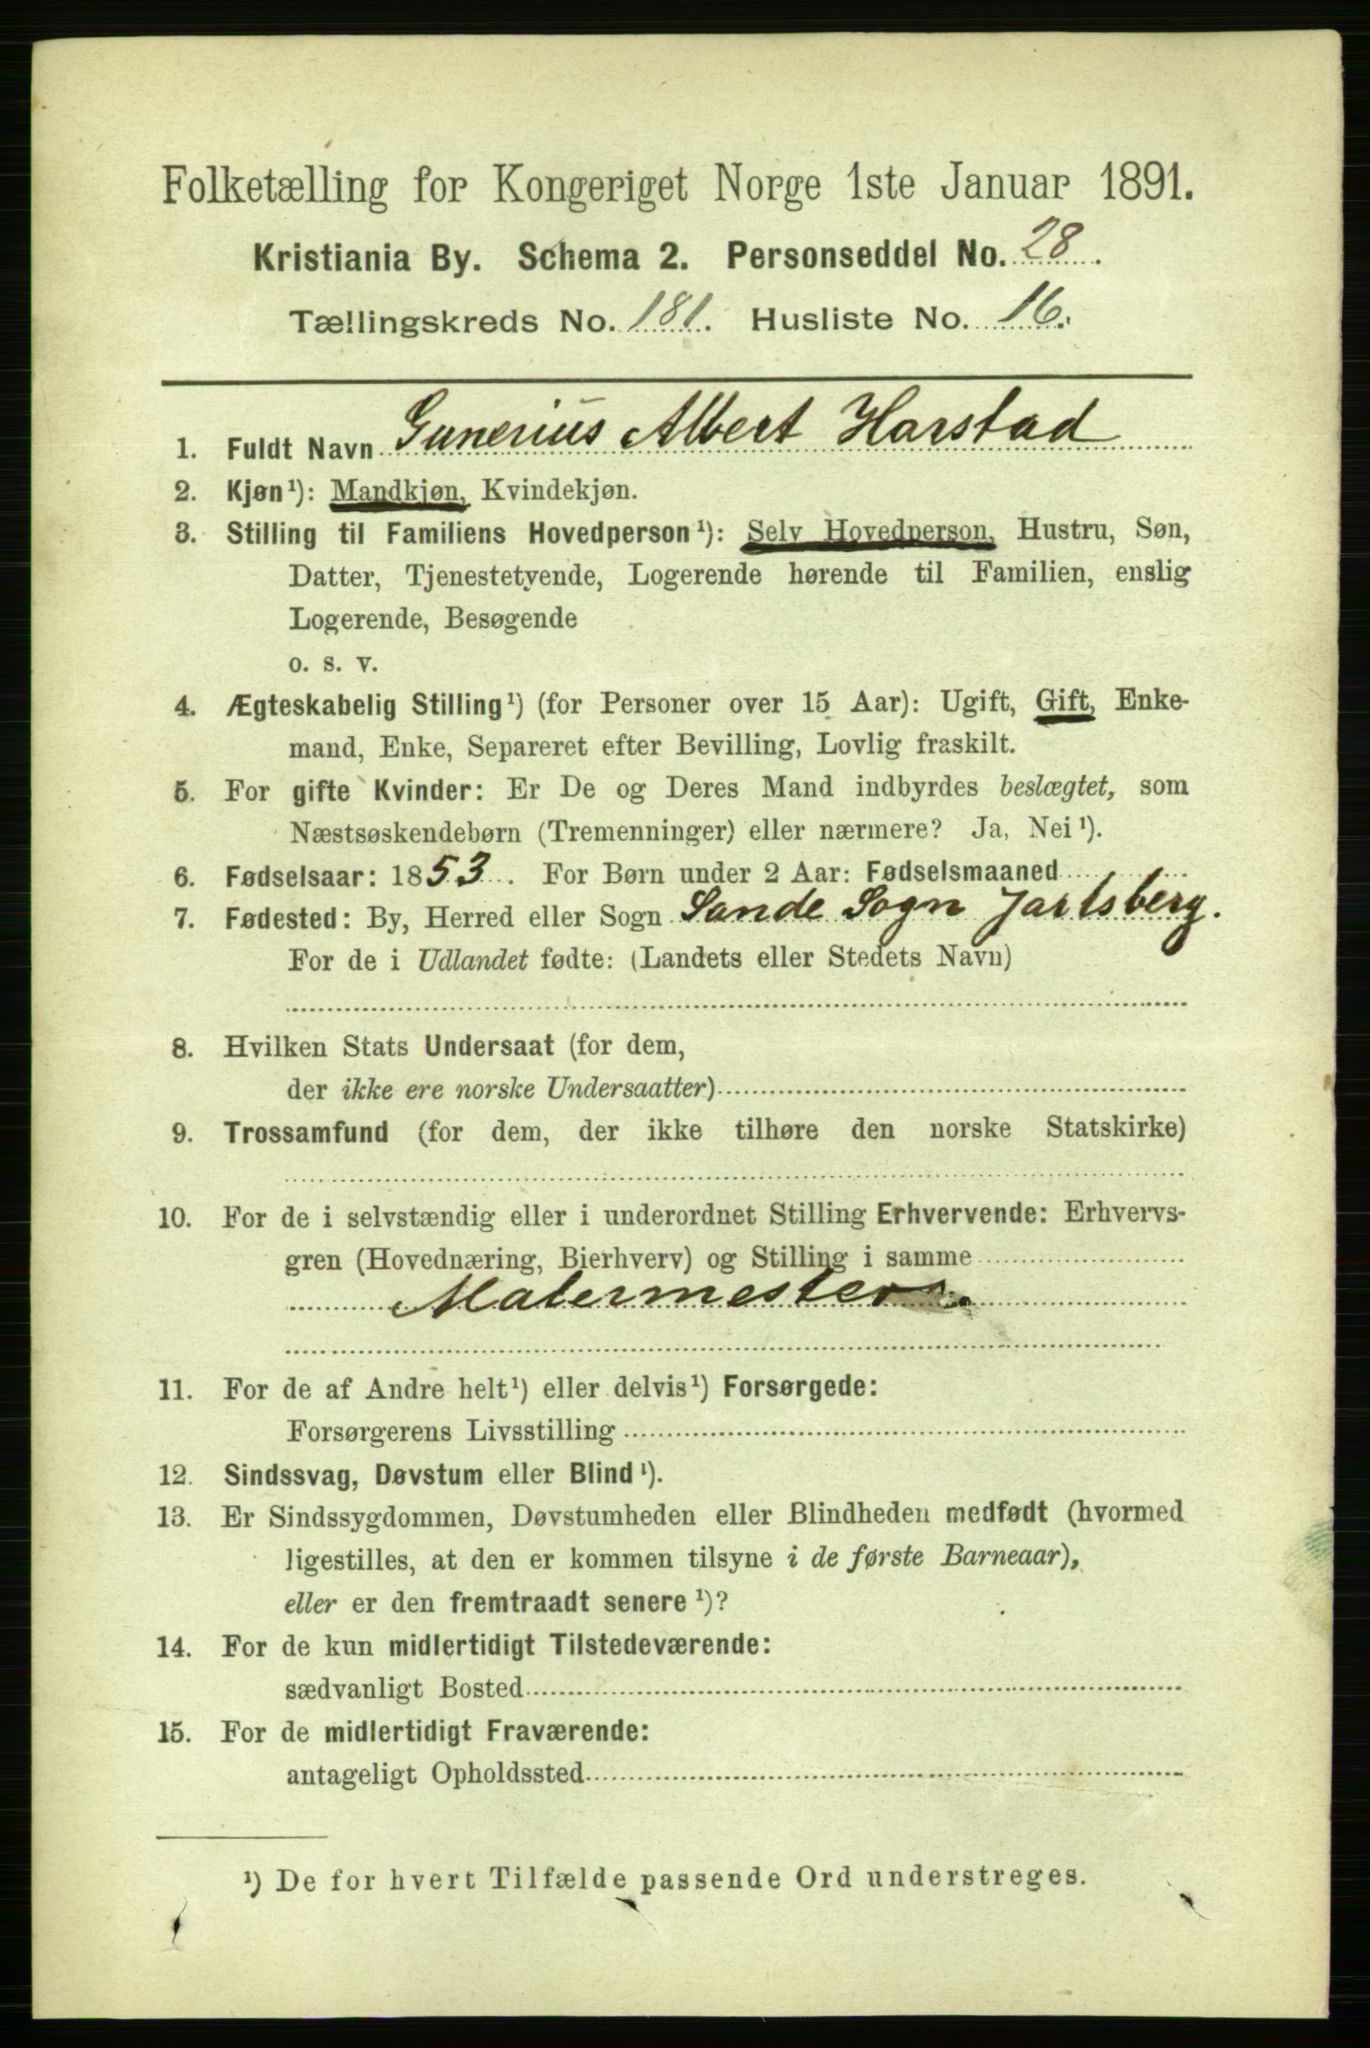 Folketælling for Kongeriget Norge 1ste Januar 1891.
Kristiania By. Schema 2. Personseddel No. 28.
Tællingskreds No. 181. Husliste No. 16.
1. Fuldt Navn Gunerius Albert Harstad
2. Kjøn¹): Mandkjøn, Kvindekjøn.
3. Stilling til Familiens Hovedperson¹): Selv Hovedperson, Hustru, Søn,
Datter, Tjenestetyende, Logerende hørende til Familien, enslig
Logerende, Besøgende
o. s. v.
4. Ægteskabelig Stilling¹) (for Personer over 15 Aar): Ugift, Gift, Enke-
mand, Enke, Separeret efter Bevilling, Lovlig fraskilt.
5. For gifte Kvinder: Er De og Deres Mand indbyrdes beslægtet, som
Næstsøskendebørn (Tremenninger) eller nærmere? Ja, Nei¹).
6. Fødselsaar: 1853. For Børn under 2 Aar: Fødselsmaaned
7. Fødested: By, Herred eller Sogn Sande Sogn Jarlsberg.
For de i Udlandet fødte: (Landets eller Stedets Navn)
8. Hvilken Stats Undersaat (for dem,
der ikke ere norske Undersaatter)
9. Trossamfund (for dem, der ikke tilhøre den norske Statskirke)
10. For de i selvstændig eller i underordnet Stilling Erhvervende: Erhvervs-
gren (Hovednæring, Bierhverv) og Stilling i samme
Malermester.
11. For de af Andre helt¹) eller delvis¹) Forsørgede:
Forsørgerens Livsstilling
12. Sindssvag, Døvstum eller Blind¹).
13. Er Sindssygdommen, Døvstumheden eller Blindheden medfødt (hvormed
ligestilles, at den er kommen tilsyne i de første Barneaar),
eller er den fremtraadt senere¹)?
14. For de kun midlertidigt Tilstedeværende:
sædvanligt Bosted
15. For de midlertidigt Fraværende:
antageligt Opholdssted
¹) De for hvert Tilfælde passende Ord understreges.